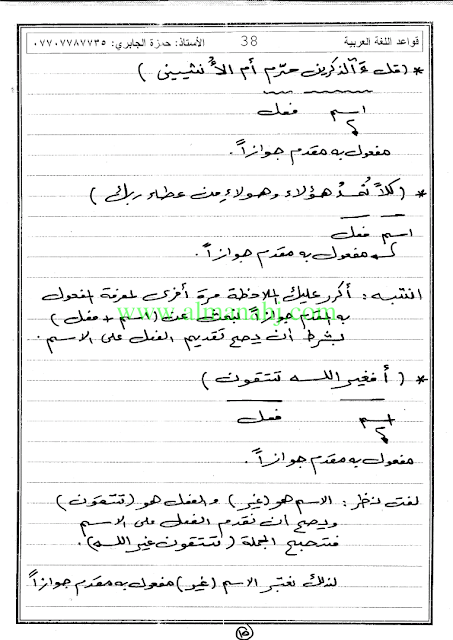 قواعد اللغة العربية 38 الأستاذ: حمزة الجابري: ٠٧٧٠٧٧٨٧٧٣٥
* (قل ءآلذكرين حرّم أم الأُنثيين)
اسم فعل
مفعول به مقدم جوازاً.
* (كلاً نُمدُّ هؤلاء وهؤلاءِ من عطاء ربك)
اسم فعل
مفعول به مقدم جوازاً.
انتبه: أكرر عليك الملاحظة مرة أخرى لمعرفة المفعول
به المقدم جوازاً نبحث عن (اسم + فعل)
بشرط أن يصح تقديم الفعل على الاسم.
www.almanahj.com
* (أفغير اللـه تتقون)
اسم فعل
مفعول به مقدم جوازاً.
لفت نظر: الاسم هو (غير) والفعل هو (تتقون)
ويصح أن نقدم الفعل على الاسم
فتصبح الجملة (أتتقون غير اللـه).
لذلك نعتبر الاسم (غير) مفعول به مقدم جوازاً
١٥